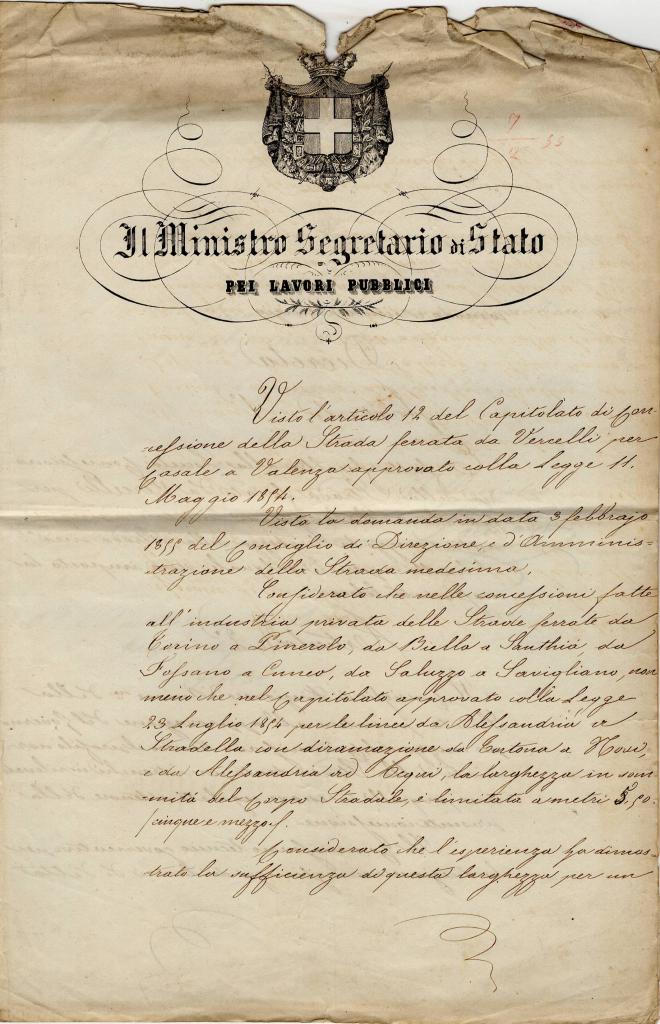 Il Ministro Segretario di Stato
PEI LAVORI PUBBLICI
Visto l'articolo 12 del Capitolato di Con-
cessione della Strada ferrata da Vercelli per
Casale a Valenza approvato colla Legge 11.
Maggio 1854.
Vista la domanda in data 3 febbrajo
1855 del Consiglio di Direzione, e d'Ammini-
strazione della Strada medesima,
Considerato che nelle concessioni fatte
all'industria privata delle Strade ferrate da
Torino a Pinerolo, da Biella a Santhià, da
Fossano a Cuneo, da Saluzzo a Savigliano, non
meno che nel Capitolato approvato colla Legge
23 Luglio 1854 per le linee da Alessandria a
Stradella con diramazione da Tortona a Novi,
e da Alessandria ad Acqui, la larghezza in som-
mità del Corpo Stradale, è limitata a metri 5,50
/cinque e mezzo/.
Considerato che l'esperienza ha dimos-
trato la sufficienza di questa larghezza per un